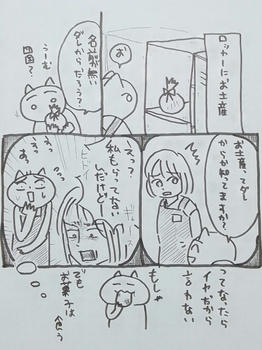 ロッカーにお土産
お
名前が無い
ダレからだろう？
うーむ
四国？
お土産、ってダレ
からか知ってますか？
えっ？
私もらってない
んだけどー
ヒドイ
ってなったら
イヤだから
言わない
もしゃ
でも
お菓子は
食う